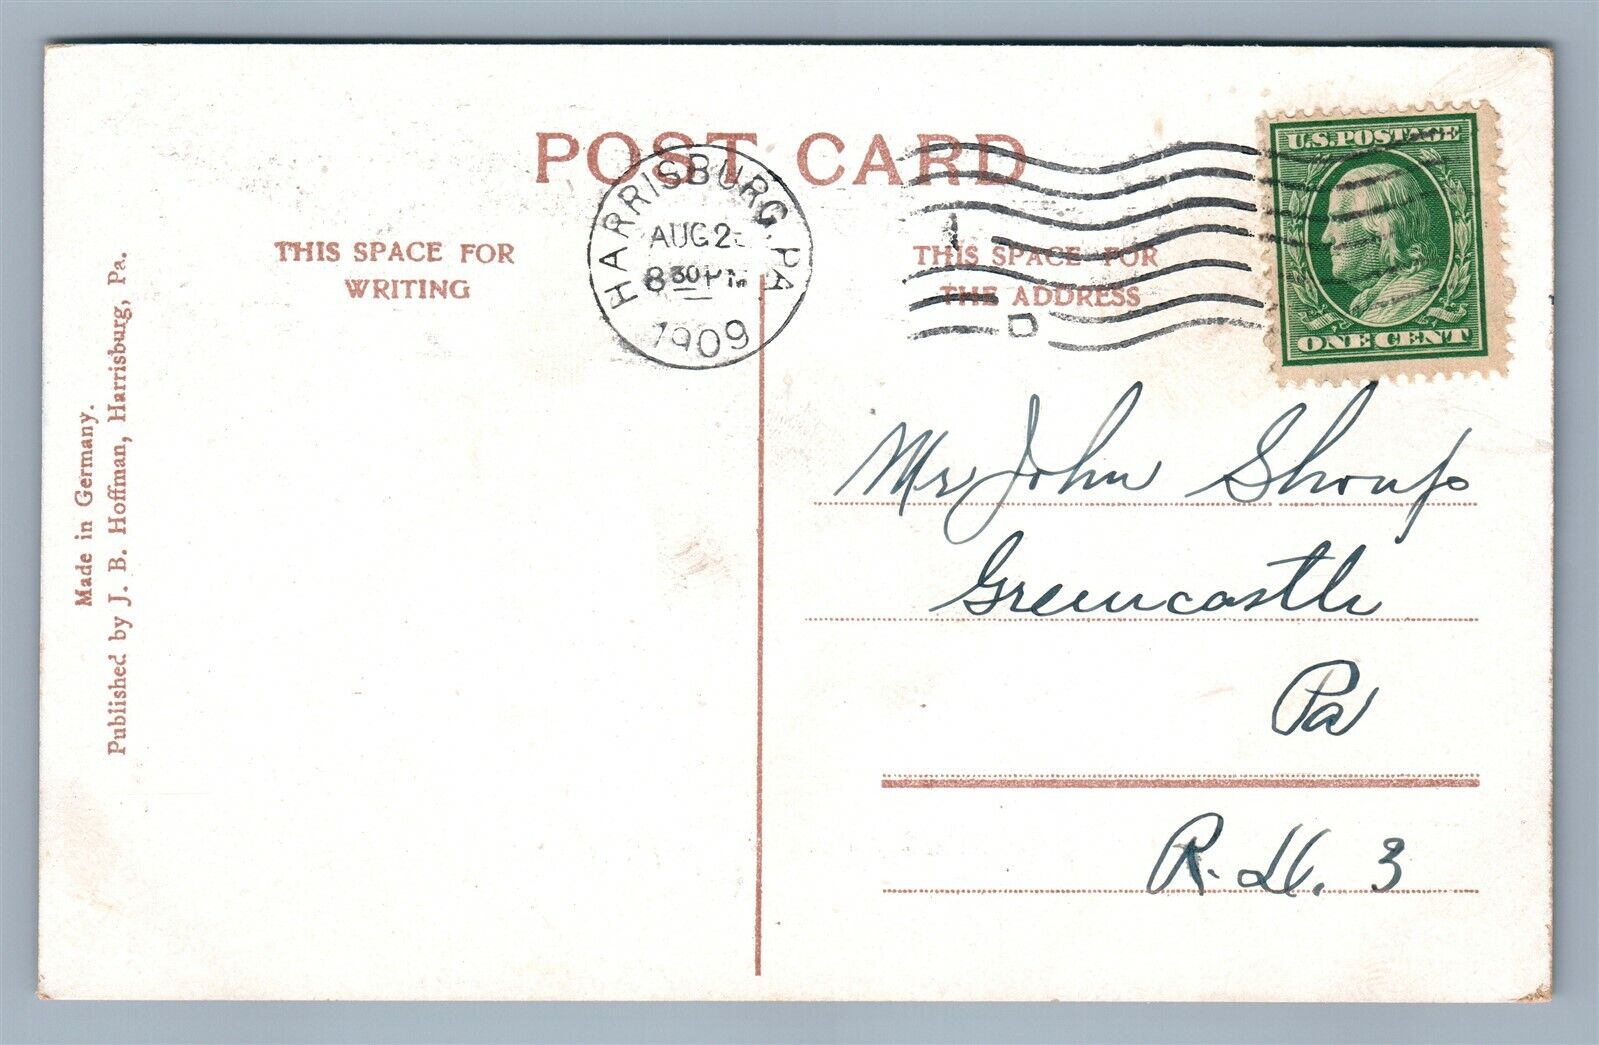 POST CARD
THIS SPACE FOR
WRITING
THIS SPACE FOR
THE ADDRESS
HARRISBURG, PA
AUG 2
8 30 PM
1909
1
D
U.S. POSTAGE
ONE CENT
Mr John Shoup
Greencastle
Pa
3
Made in Germany.
Published by J. B. Hoffman, Harrisburg, Pa.